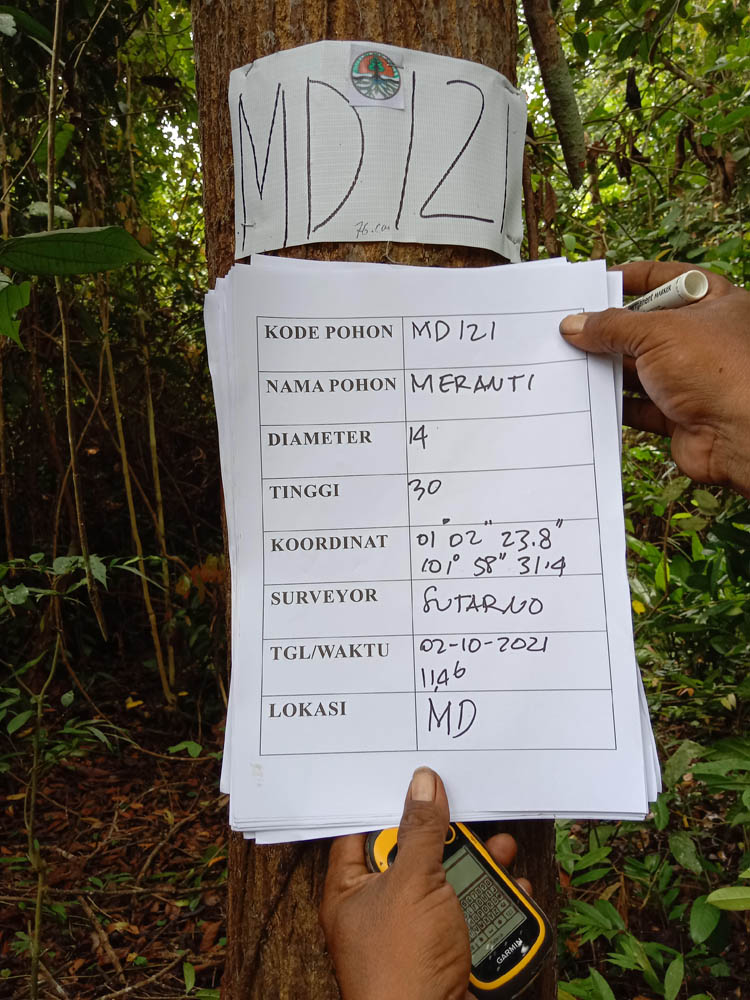 MD 121
76.cm
KODE POHON MD 121
NAMA POHON MERANTI
DIAMETER 14
TINGGI 30
KOORDINAT 01° 02" 23.8"
101° 58" 31.4
SURVEYOR SUTARNO
TGL/WAKTU 02-10-2021
11.46
LOKASI MD
MARKER
GARMIN